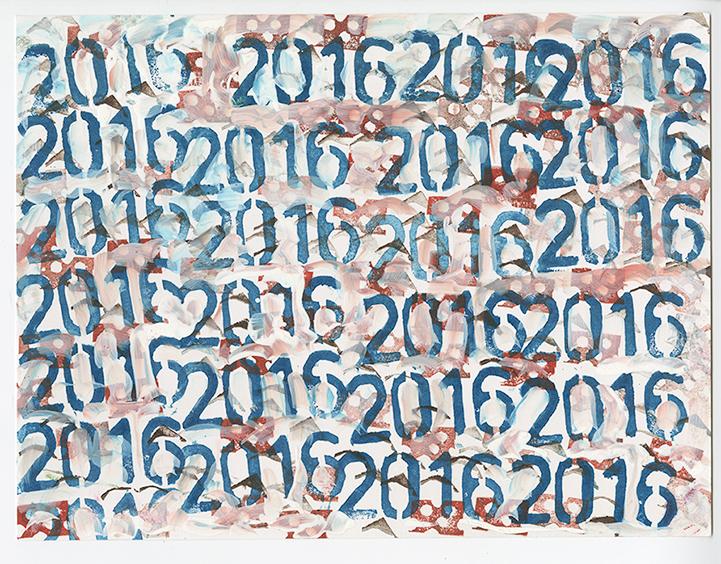 2016 2016 2016 2016
2016 2016 2016 2016
2016 2016 2016 2016
2016 2016 2016 2016
2016 2016 2016 2016
2016 2016 2016 2016